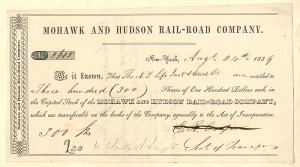 MOHAWK AND HUDSON RAIL-ROAD COMPANY.
New-York, Aug 24th 1839
Be it known, That The N.Y. Life Ins & Trust Co. are entitled to
Three hundred (300) Shares of One Hundred Dollars each, in
the Capital Stock of the MOHAWK AND HUDSON RAIL-ROAD COMPANY,
which are transferable on the books of the Company, agreeably to the Act of Incorporation.
300 Shs